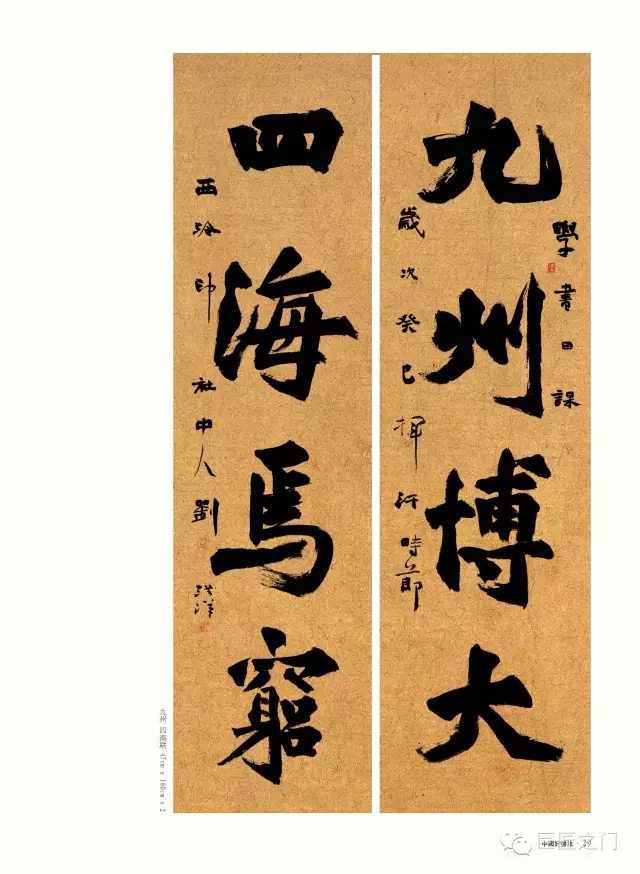 學書日課
九州博大
歲次癸巳揮汗時節
四海焉窮
西泠印社中人劉洪洋
九州 四海联 47cm x 180cm x 2
中國好書法 · 29
巨匠之门